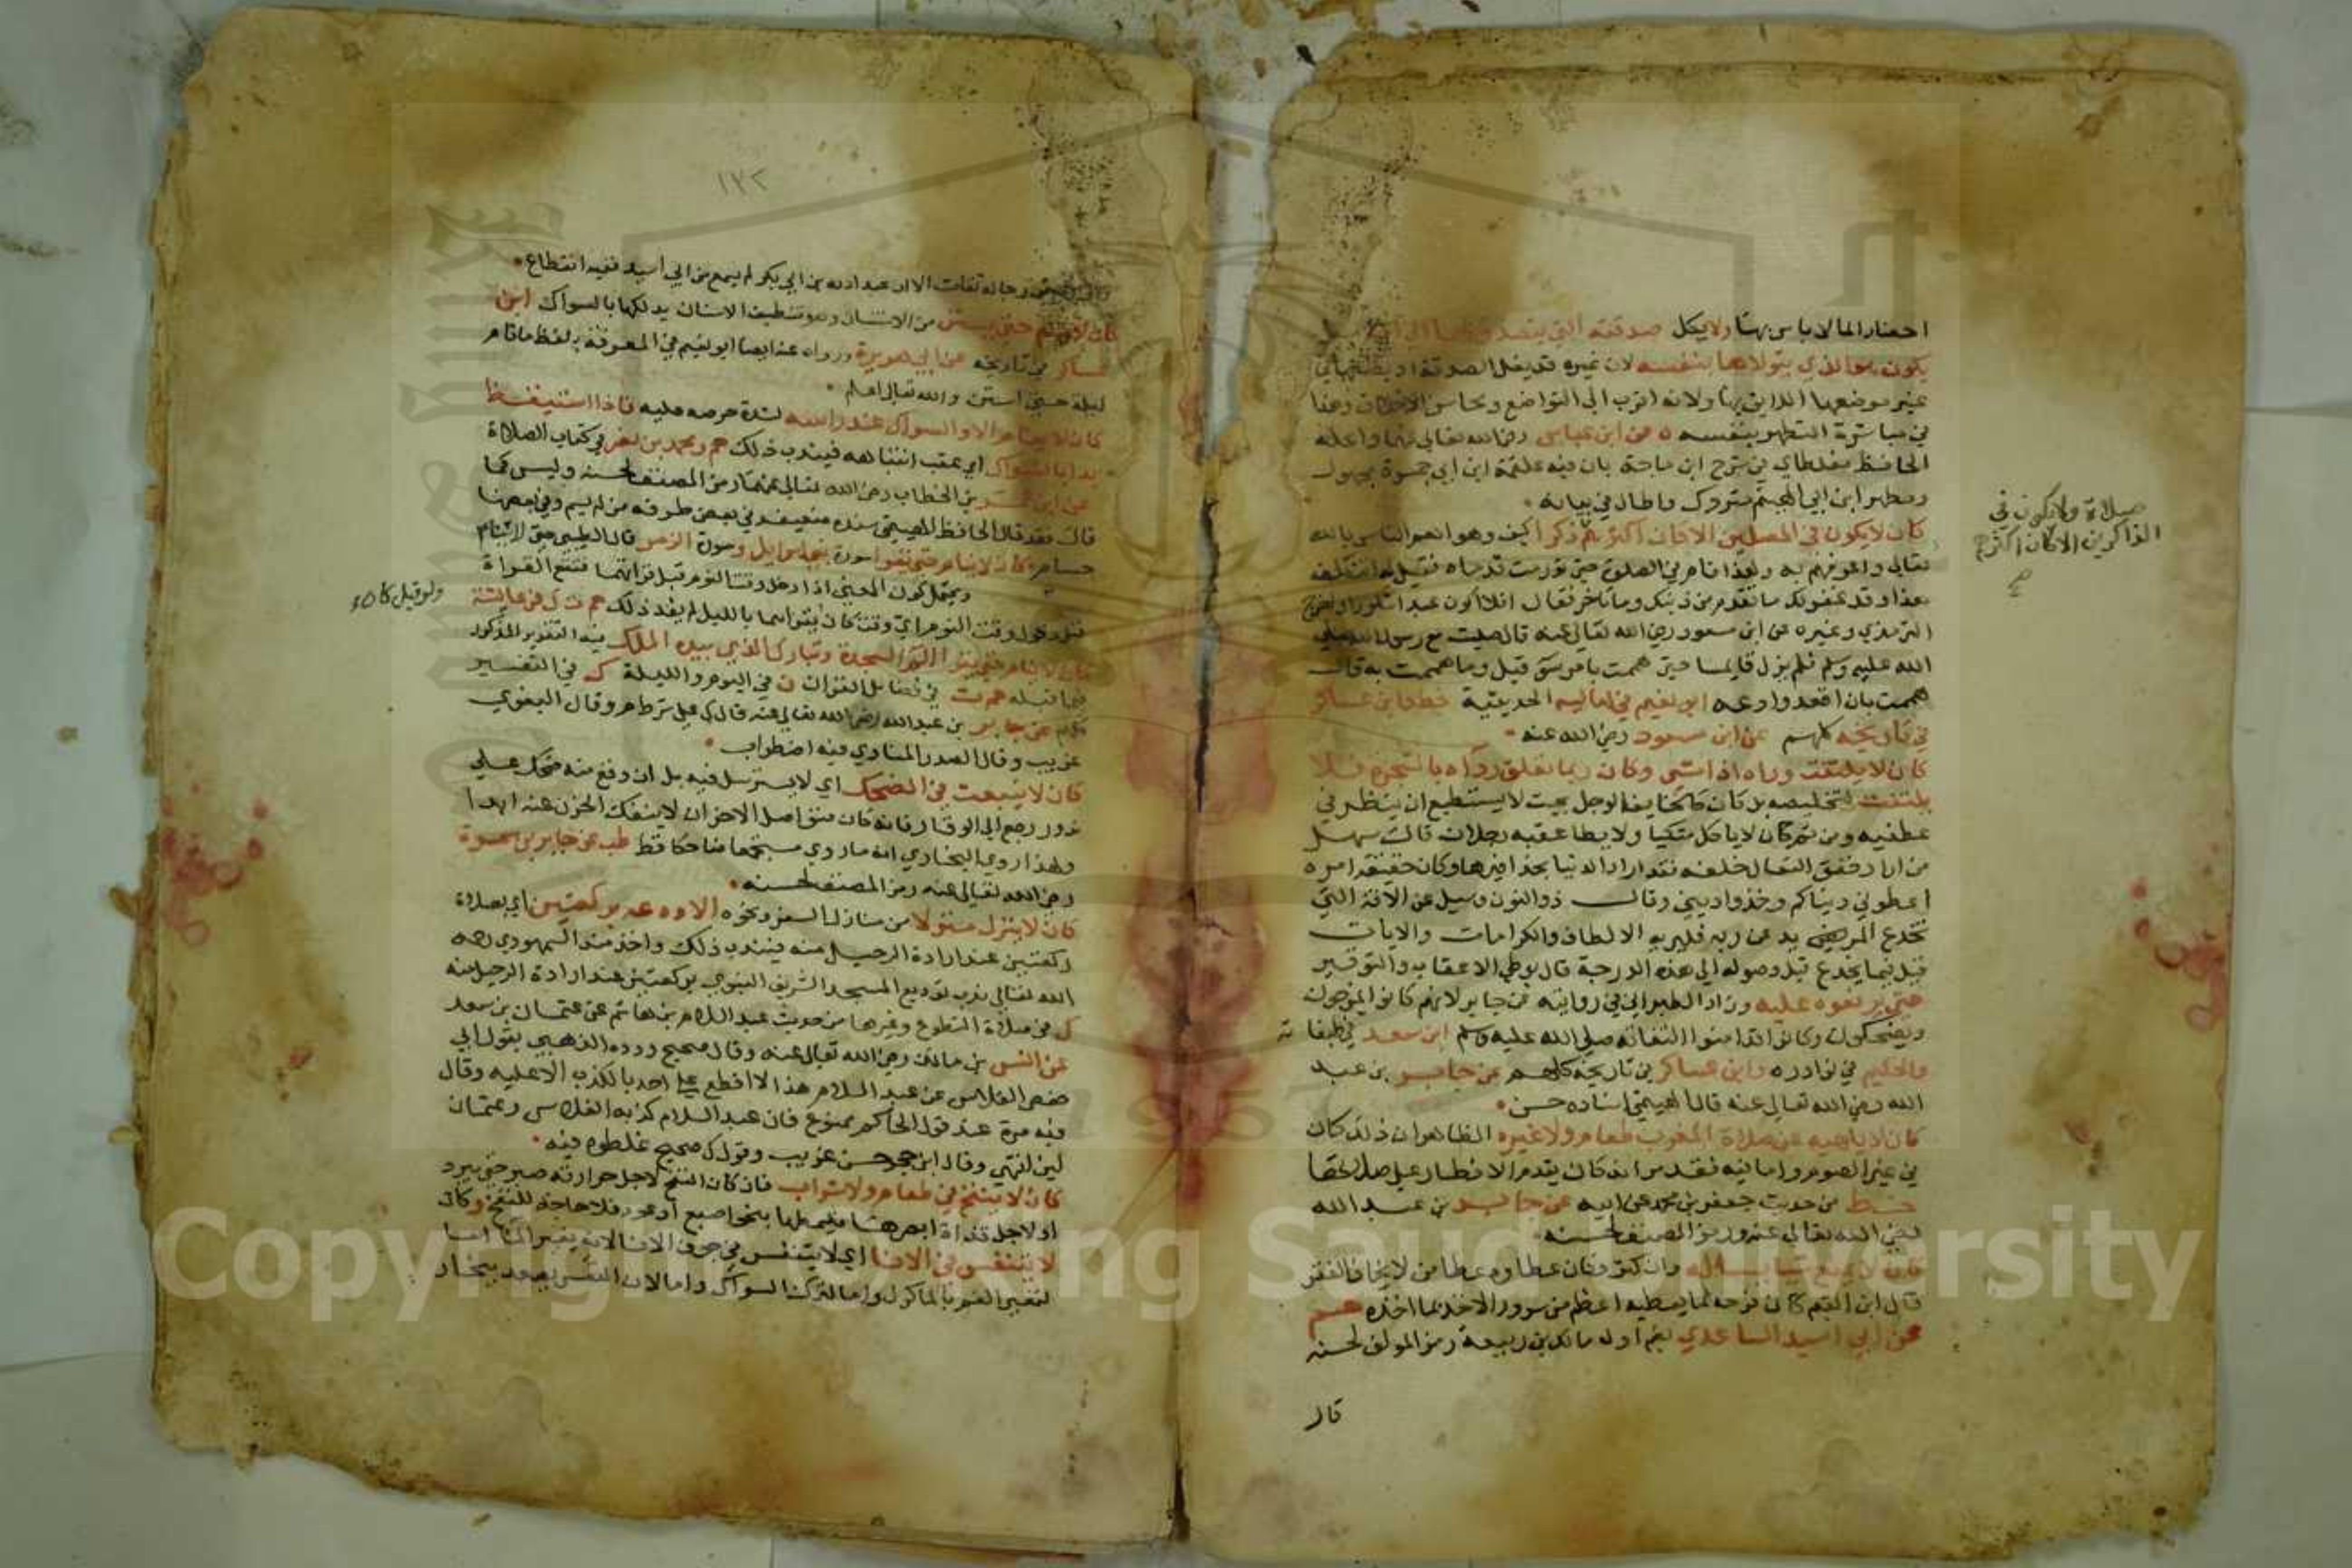 احضار الما لا باس بها ولا يكل صدقته التي يتصدق بها الى
يكون هو الذي يتولاها بنفسه لان غيره قد يغل الصدقة او يضعها في
غير موضعها اللايق بها ولانه اقرب الى التواضع ومحاسن الاخلاق وهذا
في مباشرة التطهر بنفسه ه عن ابن عباس رضي الله تعالى عنهما واعله
الحافظ مغلطاي في شرح ابن ماجة بان فيه علقمة ابن ابي جمرة مجهول
ومطهر ابن ابي الهيثم متروك واطال في بيانه
كان لا يكون في المصلين الا كان اكثرهم ذكرا كيف وهو اعلم الناس بالله
تعالى واعرفهم به ولهذا قام في الصلاة حتى تورمت قدماه فقيل له اتتكلف
هذا وقد غفر لك ما تقدم من ذنبك وما تاخر فقال افلا اكون عبدا شكورا واخرج
الترمذي وغيره عن ابن مسعود رضي الله تعالى عنه قال صليت مع رسول الله صلى
الله عليه وسلم فلم يزل قايما حتى هممت بامر سوء قيل وما هممت به قال
هممت بان اقعد وادعه ابو نعيم في اماليه الحديثية خط وابن عساكر
في تاريخه كلهم عن ابن مسعود رضي الله عنه
كان لا يلتفت وراه اذا مشى وكان ربما تعلق رداه بالشجرة فلا
يلتفت لتخليصه بل كان كالخايف الوجل بحيث لا يستطيع ان ينظر في
عطفيه ومن ثم كان لا ياكل متكيا ولا يطا عقبه رجلان قال سهل
من اراد خفق النعال خلفه فقد اراد الدنيا بحذافيرها وكان حقيقة امره
اعطوني دنياكم وخذوا ديني وقال ذو النون وسيل عن الافة التي
تخدع المريد عن ربه فقال يريه الالطاف والكرامات والايات
قيل فيما يخدع قبل وصوله الى هذه الدرجة قال بوطي الاعقاب والتوقير
حتى يرفعوه عليه وزاد الطبراني في روايته عن جابر لانهم كانوا يمزحون
ويضحكون وكانوا قد امنوا التفاته صلى الله عليه وسلم ابن سعد في طبقاته
والحكيم في نوادره وابن عساكر في تاريخه كلهم عن جابر بن عبد
الله رضي الله تعالى عنه قال الهيثمي اسناده حسن
كان لا يلهيه عن صلاة المغرب طعام ولا غيره الظاهر ان ذلك كان
في غير الصوم واما فيه فقد مر انه كان يقدم الافطار على صلاتها
قط من حديث جعفر بن محمد عن ابيه عن جابر بن عبد الله
رضي الله تعالى عنه ورمز المصنف لحسنه
كان لا يمنع شيا يساله وان كثر وكان عطاوه عطا من لا يخاف الفقر
قال ابن القيم كان فرحه بما يعطيه اعظم من سرور الاخذ بما اخذه حم
عن ابي اسيد الساعدي بضم اوله مالك بن ربيعة رمز المولف لحسنه
قال
صلاة ولا يكون في
الذاكرين الا كان اكثرهم
١٧٢
رجاله ثقات الا ان عبد الله بن ابي بكر لم يسمع من ابي اسيد ففيه انقطاع
كان لا ينام حتى يستن من الاستنان وهو تنظيف الاسنان بدلكها بالسواك ابن
عساكر في تاريخه عن ابي هريرة ورواه عنه ايضا ابو نعيم في المعرفة بلفظ ما نام
ليلة حتى استن والله تعالى اعلم
كان لا ينام الا والسواك عند راسه لشدة حرصه عليه فاذا استيقظ
بدا بالسواك اي عقب انتباهه فيندب ذلك حم ومحمد بن نصر في كتاب الصلاة
عن ابن عمر بن الخطاب رضي الله تعالى عنهما رمز المصنف لحسنه وليس كما
قال فقد قال الحافظ الهيثمي سنده ضعيف في بعض طرقه من لم يسم وفي بعضها
حسام كان لا ينام حتى يقرا سورة بني اسرايل وسورة الزمر قال الطيبي حتى لا ينام
ويحتمل كون المعنى اذا دخل وقت النوم قبل قرائتهما فتقع القراة
قبل دخول وقت النوم اي وقت كان يقراهما بالليل لم يفد ذلك حم ت ك عن عايشة
كان لا ينام حتى يقرا الم السجدة وتبارك الذي بيده الملك فيه التقرير المذكور
فيما قبله حم ت في فضايل القران ن في اليوم والليلة ك في التفسير
كلهم عن جابر بن عبد الله رضي الله تعالى عنه قال ك على شرطهما وقال البغوي
غريب وقال الصدر المناوي فيه اضطراب
كان لا ينبعث في الضحك اي لا يسترسل فيه بل ان وقع منه ضحك على
ندور رجع الى الوقار فانه كان متواصل الاحزان لا ينفك الحزن عنه ابدا
ولهذا روى البخاري انه ما روي مستجمعا ضاحكا قط طب عن جابر بن سمرة
رضي الله تعالى عنه رمز المصنف لحسنه
كان لا ينزل منزلا من منازل السفر ونحوه الا ودعه بركعتين اي بصلاة
ركعتين عند ارادة الرحيل منه فيندب ذلك واخذ منه السمهودي رحمه
الله تعالى ندب توديع المسجد الشريف النبوي بركعتين عند ارادة الرحيل منه
ك في صلاة التطوع وغيرها من حديث عبد السلام بن هاشم عن عثمان بن سعد
عن انس بن مالك رضي الله تعالى عنه وقال صحيح ورده الذهبي بقول ابي
حفص الفلاس عن عبد السلام هذا لا اقطع على احد بالكذب الا عليه وقال
فيه مرة عند قول الحاكم ممنوع فان عبد السلام كذبه الفلاس وعثمان
لين انتهى وقال ابن حجر حسن غريب وقول ك صحيح غلطوه فيه
كان لا ينفخ في طعام ولا شراب فان كان النفخ لاجل حرارته صبر حتى يبرد
او لاجل قذاة ابصرها فليمطها بنحو اصبع او عود فلا حاجة للنفخ وكان
لا يتنفس في الانا اي لا يتنفس في جوف الانا لانه يغير الما اما
لتغير الفم بالماكول واما لترك السواك واما لان النفس يصعد ببخار
ولو قيل كان